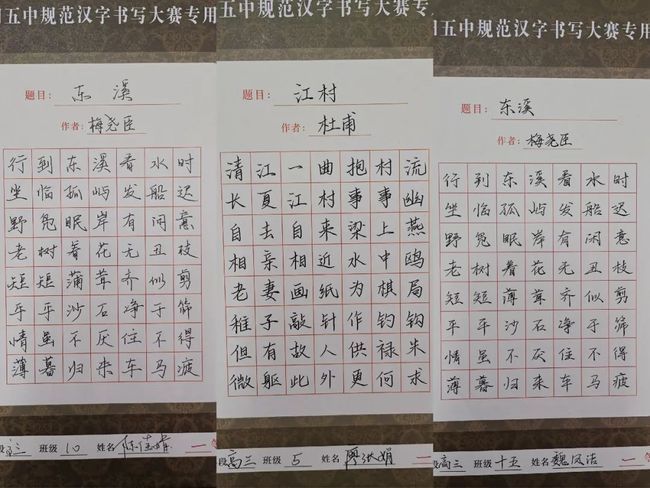 五中规范汉字书写大赛专用
题目: 东溪
作者: 梅尧臣
行到东溪看水时
坐临孤屿发船迟
野凫眠岸有闲意
老树着花无丑枝
短短蒲茸齐似剪
平平沙石净于筛
情虽不厌住不得
薄暮归来车马疲
段 高三 班级 10 姓名 一
五中规范汉字书写大赛专用
题目: 江村
作者: 杜甫
清江一曲抱村流
长夏江村事事幽
自去自来梁上燕
相亲相近水中鸥
老妻画纸为棋局
稚子敲针作钓钩
但有故人供禄米
微躯此外更何求
段 高三 班级 5 姓名 一
五中规范汉字书写大赛专用
题目: 东溪
作者: 梅尧臣
行到东溪看水时
坐临孤屿发船迟
野凫眠岸有闲意
老树着花无丑枝
短短薄茸齐似剪
平平沙石净于筛
情虽不厌住不得
薄暮归来车马疲
段 高三 班级 十五 姓名 魏凤洁 一